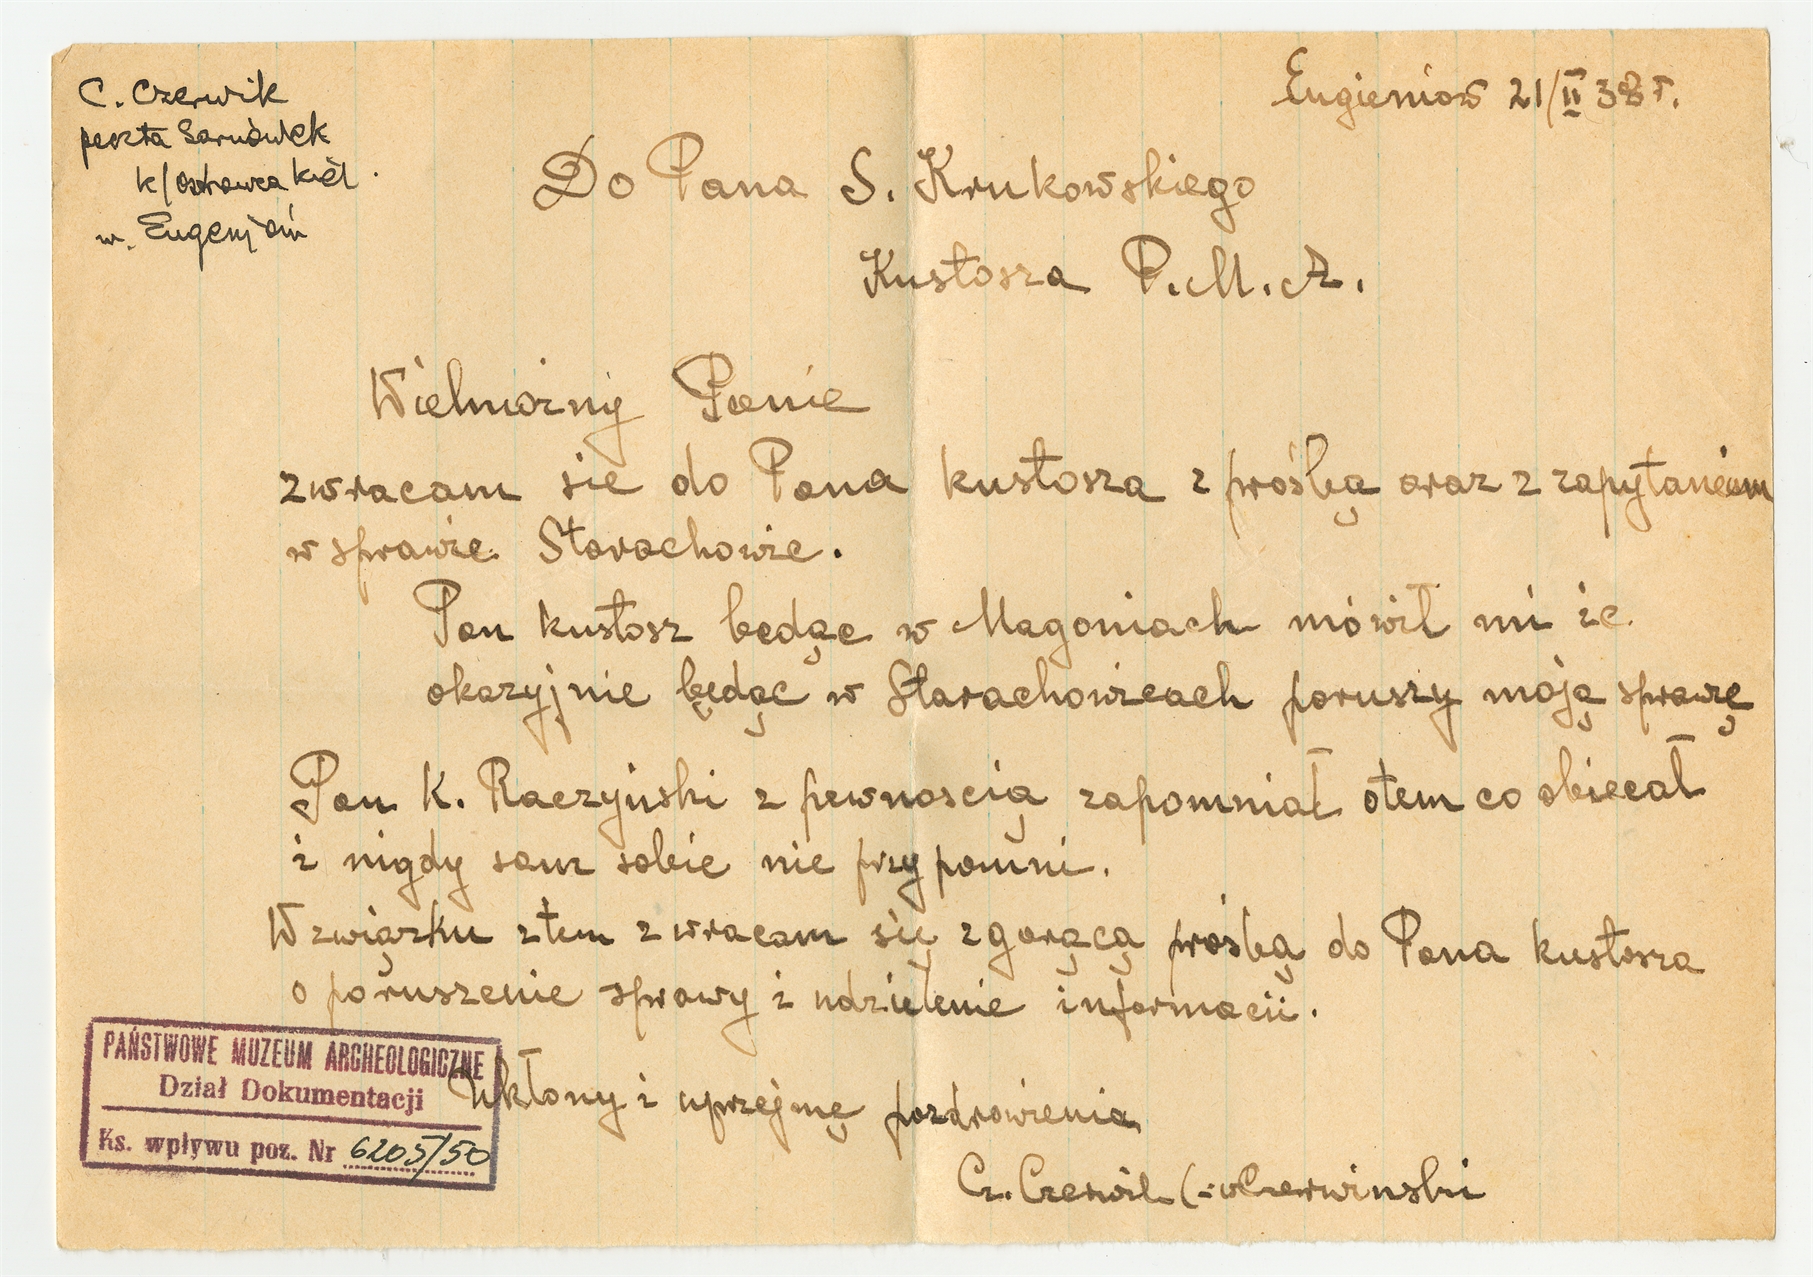 C. Czerwik
poczta Sarnówek
k/Ostrowca Kiel.
w. Eugenjów
Eugieniów 21/II 38 r.
Do Pana S. Krukowskiego
Kustosza P.M.A.
Wielmożny Panie
zwracam sie do Pana kustosza z prośbą oraz z zapytaniem
w sprawie Starachowic.
Pan kustosz będąc w Magoniach mówił mi że
okazyjnie będąc w Starachowicach poruszy moją sprawę
Pan K. Raczyński z pewnoscią zapomniał otem co obiecał
i nigdy sam sobie nie przypomni.
Wzwiązku ztem zwracam się zgorącą prośbą do Pana kustosza
o poruszenie sprawy i udzielenie informacii.
Ukłony i uprzejmę pozdrowienia
Cz. Czerwik Czerwinski
PAŃSTWOWE MUZEUM ARCHEOLOGICZNE
Dział Dokumentacji
Ks. wpływu poz. Nr 6205/50